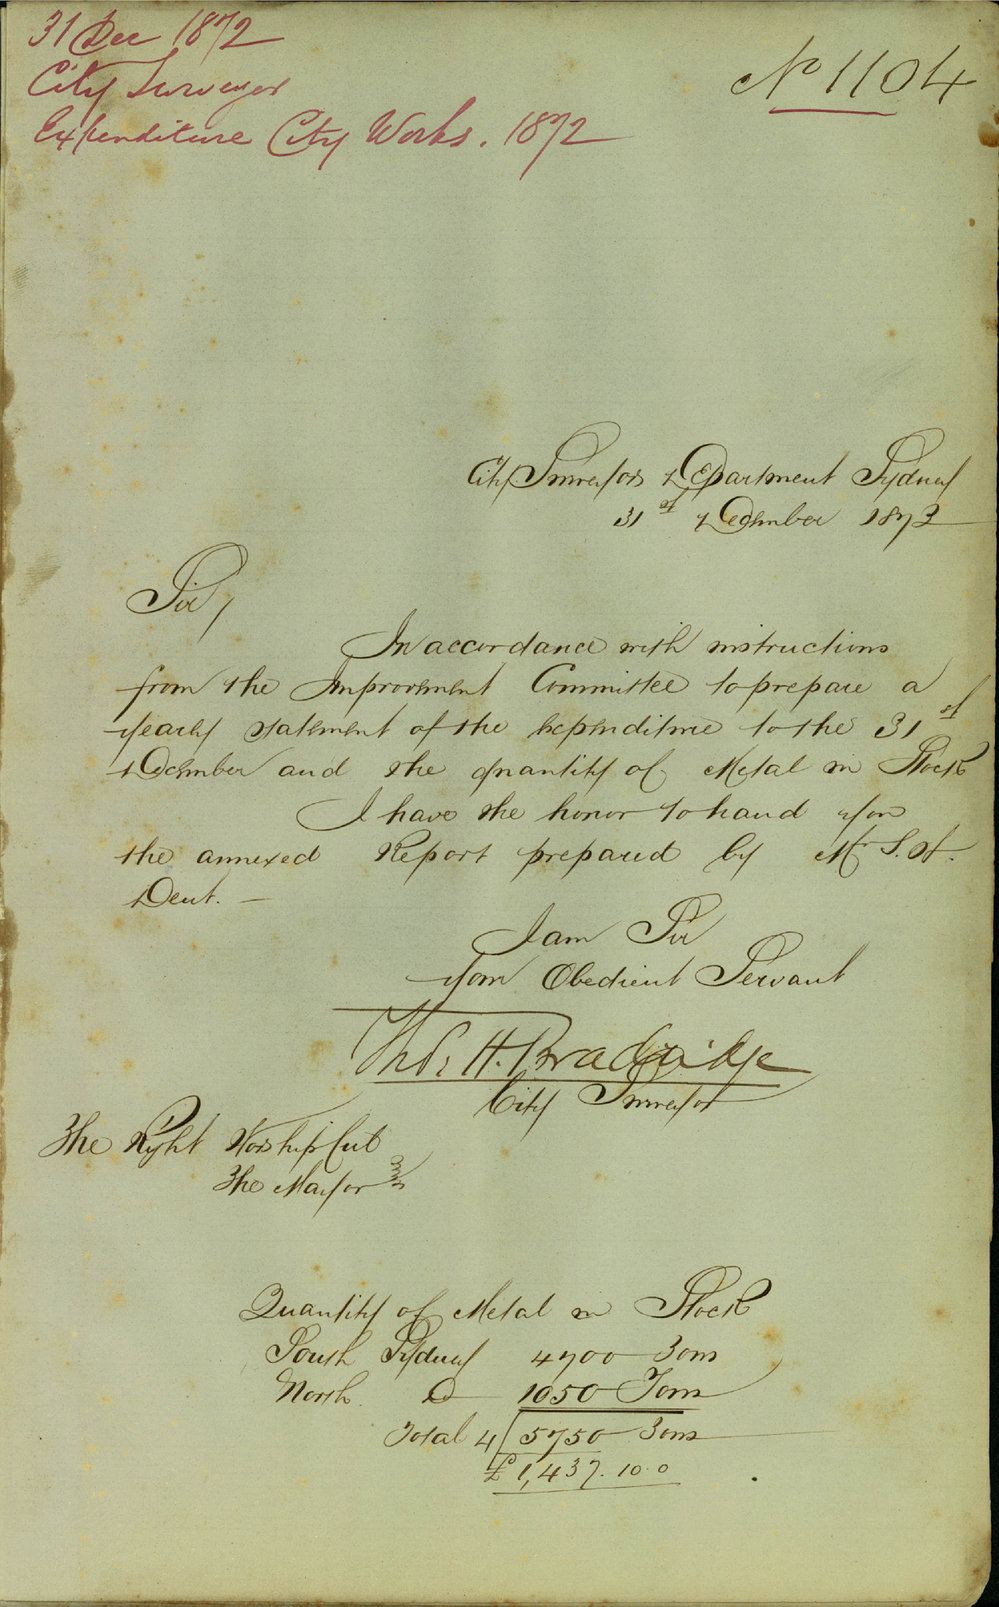 31 Dec 1872
City Surveyor
Expenditure City Works. 1872
No 1104
City Surveyors Department Sydney
31st December 1872
Sir,
In accordance with instructions
from the Improvement Committee to prepare a
yearly statement of the Expenditure to the 31st
December and the quantity of Metal in Stock
I have the honor to hand you
the annexed Report prepared by Mr S. H.
Dent. —
I am Sir
your Obedient Servant
Thos H. Bradridge
City Surveyor
The Right Worshipful
The Mayor
Quantity of Metal in Stock
South Sydney 4700 Tons
North Do 1050 Tons
Total 4 5750 Tons
£ 1,437. 10. 0